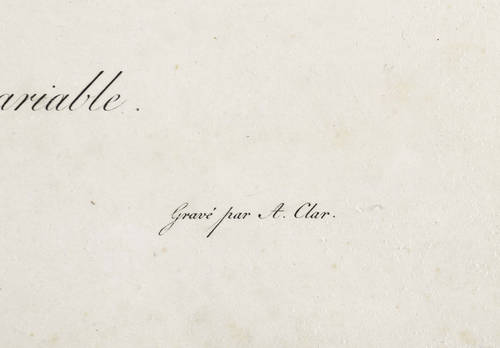 ariable.
Gravé par A. Clar.